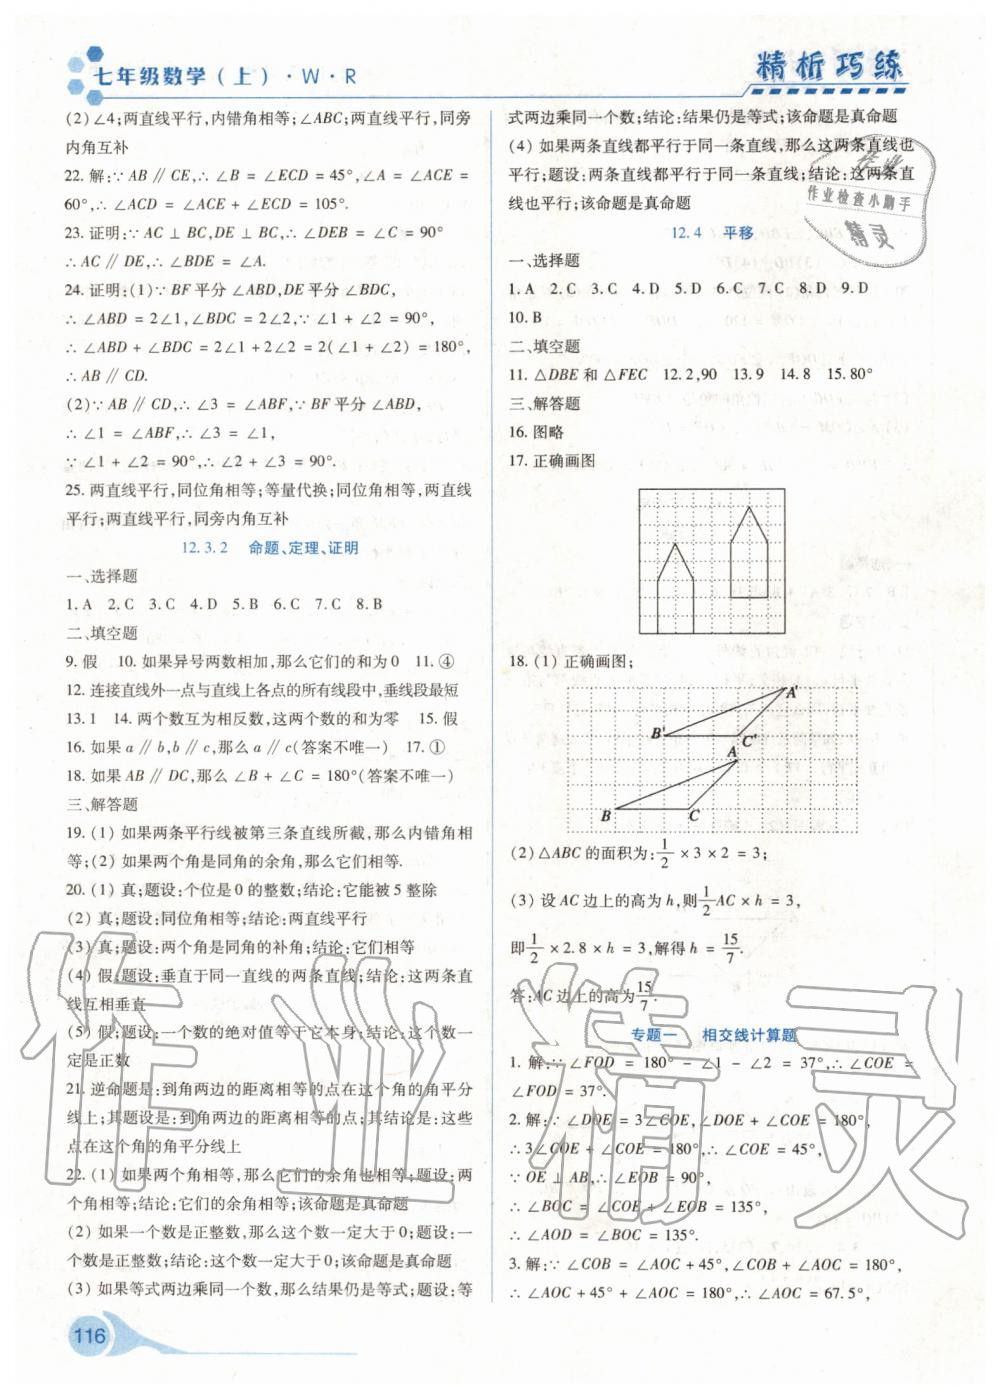 七年级数学(上)·W·R
精析巧练
(2) ∠4;两直线平行,内错角相等;∠ABC;两直线平行,同旁
内角互补
22. 解:∵ AB ∥ CE,∴ ∠B = ∠ECD = 45°,∠A = ∠ACE =
60°,∴ ∠ACD = ∠ACE + ∠ECD = 105°.
23. 证明:∵ AC ⊥ BC,DE ⊥ BC,∴ ∠DEB = ∠C = 90°
∴ AC ∥ DE,∴ ∠BDE = ∠A.
24. 证明:(1)∵ BF 平分 ∠ABD,DE 平分 ∠BDC,
∴ ∠ABD = 2∠1,∠BDC = 2∠2,∵ ∠1 + ∠2 = 90°,
∴ ∠ABD + ∠BDC = 2∠1+2∠2 = 2(∠1 + ∠2) = 180°,
∴ AB ∥ CD.
(2)∵ AB ∥ CD,∴ ∠3 = ∠ABF,∵ BF 平分 ∠ABD,
∴ ∠1 = ∠ABF,∴ ∠3 = ∠1,
∵ ∠1 + ∠2 = 90°,∴ ∠2 + ∠3 = 90°.
25. 两直线平行,同位角相等;等量代换;同位角相等,两直线
平行;两直线平行,同旁内角互补
12.3.2 命题、定理、证明
一、选择题
1. A 2. C 3. C 4. D 5. B 6. C 7. C 8. B
二、填空题
9. 假 10. 如果异号两数相加,那么它们的和为0 11. ④
12. 连接直线外一点与直线上各点的所有线段中,垂线段最短
13. 1 14. 两个数互为相反数,这两个数的和为零 15. 假
16. 如果 a ∥ b,b ∥ c,那么 a ∥ c(答案不唯一) 17. ①
18. 如果 AB ∥ DC,那么 ∠B + ∠C = 180°(答案不唯一)
三、解答题
19. (1) 如果两条平行线被第三条直线所截,那么内错角相
等;(2) 如果两个角是同角的余角,那么它们相等.
20. (1) 真;题设:个位是0的整数;结论:它能被5整除
(2) 真;题设:同位角相等;结论:两直线平行
(3) 真;题设:两个角是同角的补角;结论:它们相等
(4) 假;题设:垂直于同一直线的两条直线;结论:这两条直
线互相垂直
(5) 假;题设:一个数的绝对值等于它本身;结论:这个数一
定是正数
21. 逆命题是:到角两边的距离相等的点在这个角的角平分
线上;其题设是:到角两边的距离相等的点;其结论是:这些
点在这个角的角平分线上
22. (1) 如果两个角相等,那么它们的余角也相等;题设:两
个角相等;结论:它们的余角相等;该命题是真命题
(2) 如果一个数是正整数,那么这个数一定大于0;题设:一
个数是正整数;结论:这个数一定大于0;该命题是真命题
(3) 如果等式两边乘同一个数,那么结果仍是等式;题设:等
116
式两边乘同一个数;结论:结果仍是等式;该命题是真命题
(4) 如果两条直线都平行于同一条直线,那么这两条直线也
平行;题设:两条直线都平行于同一条直线;结论:这两条直
线也平行;该命题是真命题
作业
作业检查小助手
精灵
12.4 平移
一、选择题
1. A 2. C 3. C 4. D 5. D 6. C 7. C 8. D 9. D
10. B
二、填空题
11. △DBE 和 △FEC 12. 2,90 13. 9 14. 8 15. 80°
三、解答题
16. 图略
17. 正确画图
18. (1) 正确画图;
A'
B' C'
A
B C
(2) △ABC 的面积为:1/2 × 3 × 2 = 3;
(3) 设 AC 边上的高为 h,则 1/2 AC × h = 3,
即 1/2 × 2.8 × h = 3,解得 h = 15/7.
答:AC 边上的高为 15/7.
专题一 相交线计算题
1. 解:∵ ∠FOD = 180° − ∠1 − ∠2 = 37°,∴ ∠COE =
∠FOD = 37°.
2. 解:∵ ∠DOE = 3∠COE,∠DOE + ∠COE = 180°,
∴ 3∠COE + ∠COE = 180°,∴ ∠COE = 45°,
∵ OE ⊥ AB,∴ ∠EOB = 90°,
∴ ∠BOC = ∠COE + ∠EOB = 135°,
∴ ∠AOD = ∠BOC = 135°.
3. 解:∵ ∠COB = ∠AOC +45°,∠COB + ∠AOC = 180°,
∴ ∠AOC +45° + ∠AOC = 180°,∴ ∠AOC = 67.5°,
作业精灵